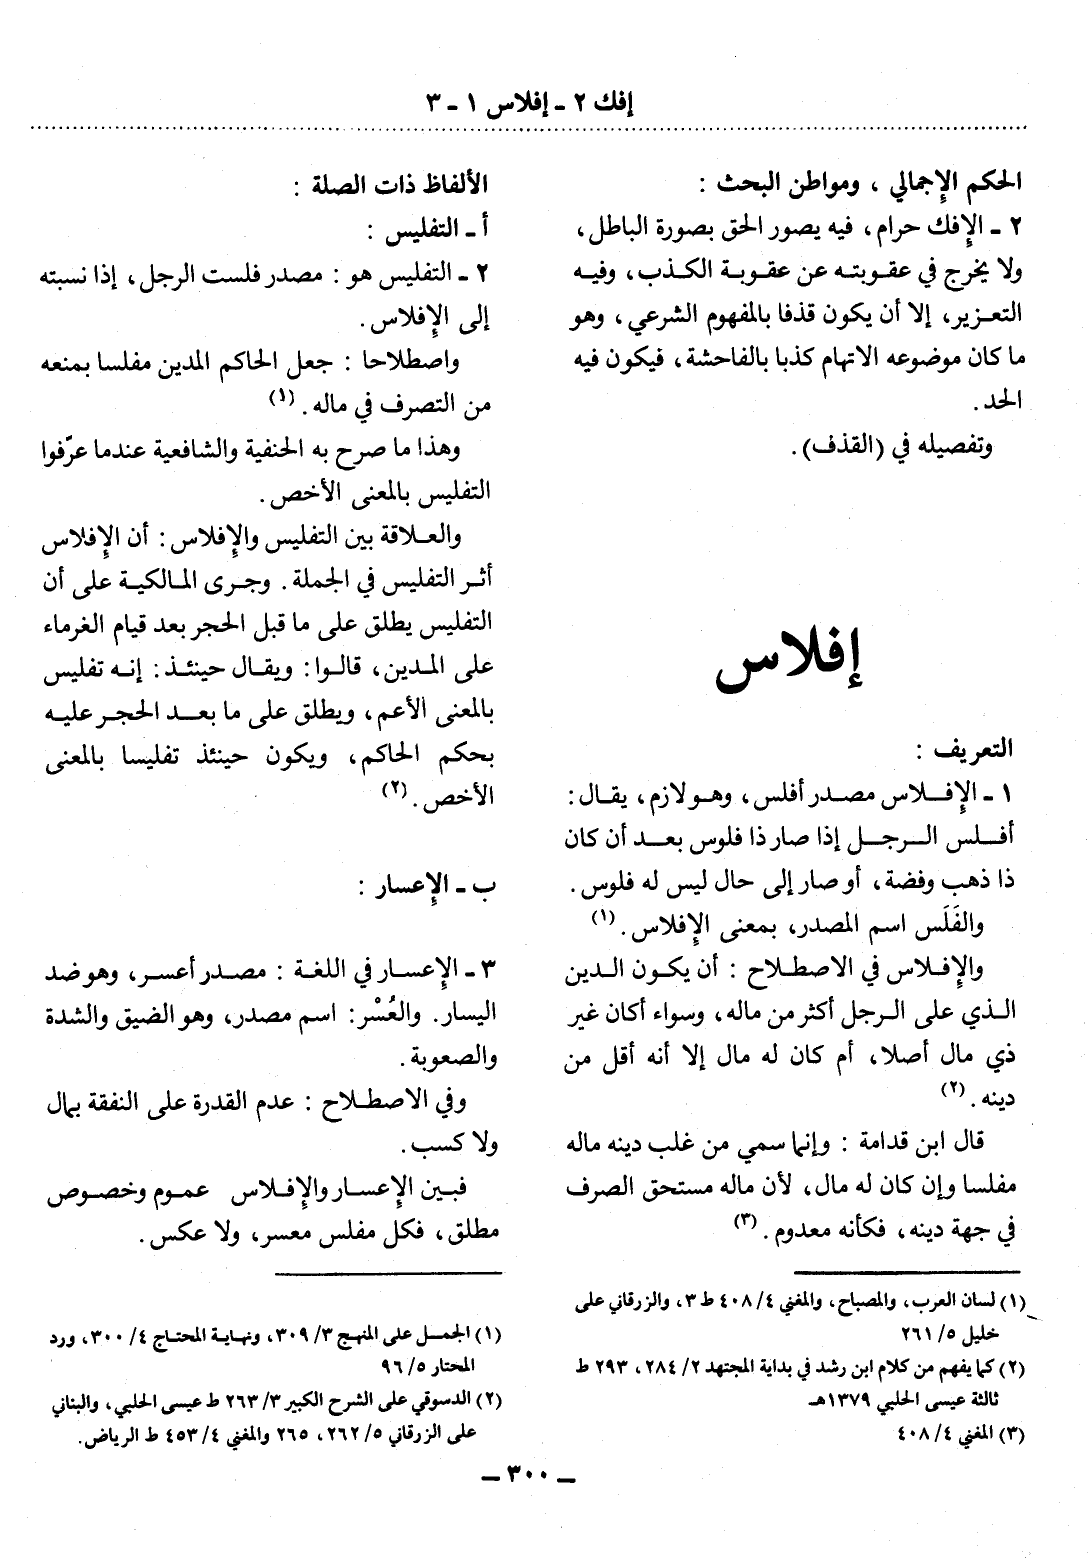 إفك ٢ - إفلاس ١ - ٣
الحكم الإجمالي ، ومواطن البحث :
٢ - الإفك حرام ، فيه يصور الحق بصورة الباطل ،
ولا يخرج في عقوبته عن عقوبة الكذب ، وفيه
التعزير ، إلا أن يكون قذفا بالمفهوم الشرعي ، وهو
ما كان موضوعه الاتهام كذبا بالفاحشة ، فيكون فيه
الحد .
وتفصيله في (القذف) .
إفلاس
التعريف :
١ - الإفلاس مصدر أفلس ، وهو لازم ، يقال :
أفلس الرجل إذا صار ذا فلوس بعد أن كان
ذا ذهب وفضة ، أو صار إلى حال ليس له فلوس .
والفَلَس اسم المصدر ، بمعنى الإفلاس . (١)
والإفلاس في الاصطلاح : أن يكون الدين
الذي على الرجل أكثر من ماله ، وسواء أكان غير
ذي مال أصلا ، أم كان له مال إلا أنه أقل من
دينه . (٢)
قال ابن قدامة : وإنما سمي من غلب دينه ماله
مفلسا وإن كان له مال ، لأن ماله مستحق الصرف
في جهة دينه ، فكأنه معدوم . (٣)
(١) لسان العرب ، والمصباح ، والمغني ٤/ ٤٠٨ ط ٣ ، والزرقاني على
خليل ٥/ ٢٦١
(٢) كما يفهم من كلام ابن رشد في بداية المجتهد ٢/ ٢٨٤ ، ٢٩٣ ط
ثالثة عيسى الحلبي ١٣٧٩هـ
(٣) المغني ٤/ ٤٠٨
الألفاظ ذات الصلة :
أ - التفليس :
٢ - التفليس هو : مصدر فلست الرجل ، إذا نسبته
إلى الإفلاس .
واصطلاحا : جعل الحاكم المدين مفلسا بمنعه
من التصرف في ماله . (١)
وهذا ما صرح به الحنفية والشافعية عندما عرّفوا
التفليس بالمعنى الأخص .
والعلاقة بين التفليس والإفلاس : أن الإفلاس
أثر التفليس في الجملة . وجرى المالكية على أن
التفليس يطلق على ما قبل الحجر بعد قيام الغرماء
على المدين ، قالوا : ويقال حينئذ : إنه تفليس
بالمعنى الأعم ، ويطلق على ما بعد الحجر عليه
بحكم الحاكم ، ويكون حينئذ تفليسا بالمعنى
الأخص . (٢)
ب - الإعسار :
٣ - الإعسار في اللغة : مصدر أعسر ، وهو ضد
اليسار . والعُسْر : اسم مصدر ، وهو الضيق والشدة
والصعوبة .
وفي الاصطلاح : عدم القدرة على النفقة بمال
ولا كسب .
فبين الإعسار والإفلاس عموم وخصوص
مطلق ، فكل مفلس معسر ، ولا عكس .
(١) الجمل على المنهج ٣/ ٣٠٩ ، ونهاية المحتاج ٤/ ٣٠٠ ، ورد
المحتار ٥/ ٩٦
(٢) الدسوقي على الشرح الكبير ٣/ ٢٦٣ ط عيسى الحلبي ، والبناني
على الزرقاني ٥/ ٢٦٢ ، ٢٦٥ والمغني ٤/ ٤٥٣ ط الرياض .
- ٣٠٠ -